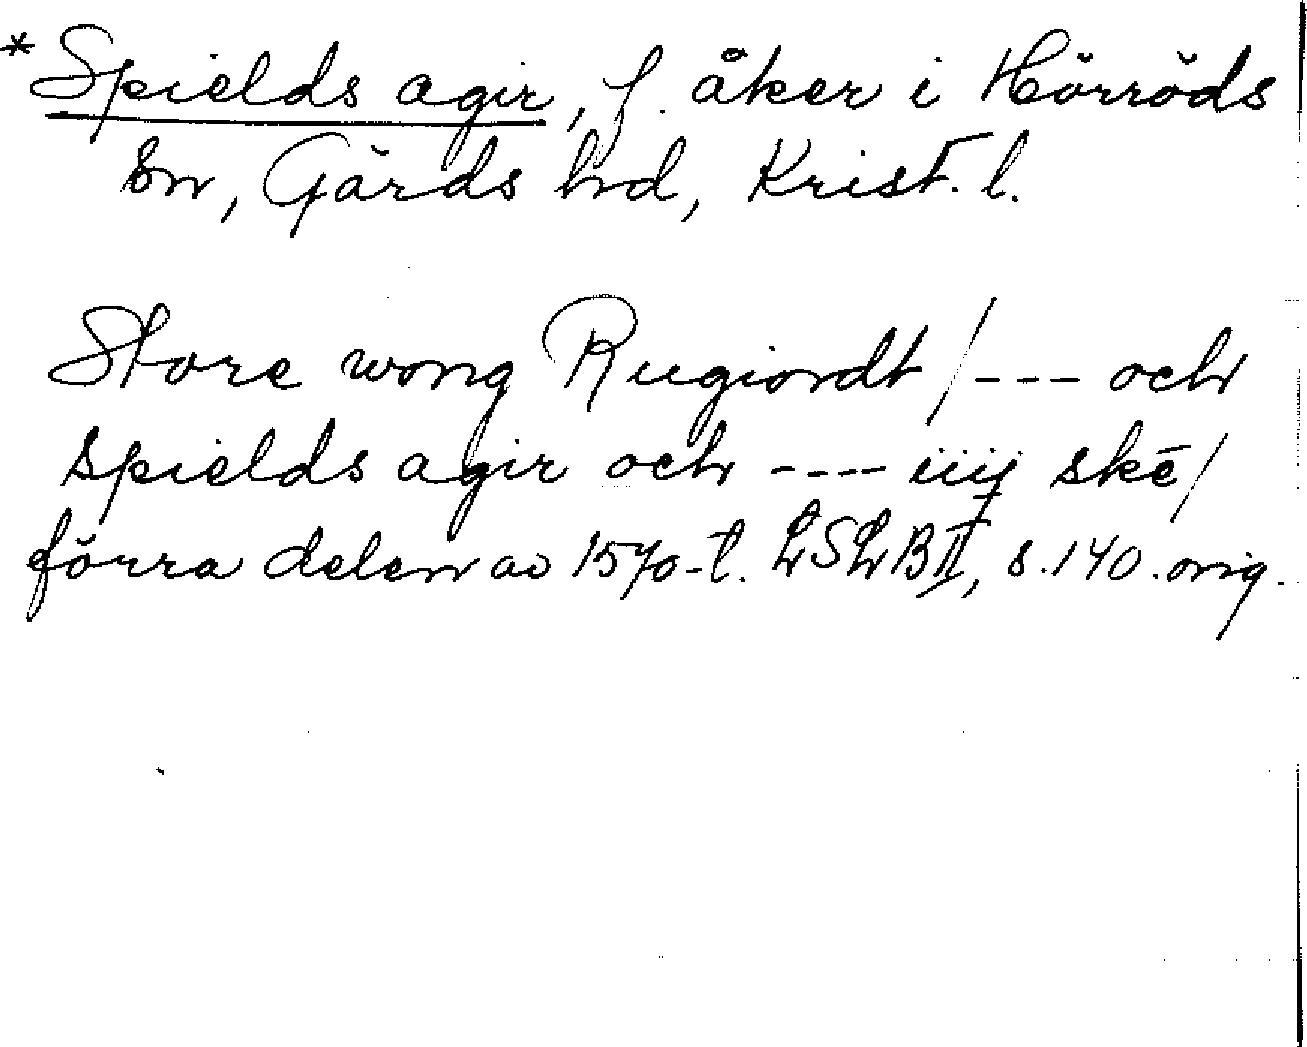 * Spields agir, f. åker i Hörröds
sn, Gärds hd, Krist. l.
Store wong Rugiordt /--- och
spields agir och ---- iiij skē/
förra delen av 1570-t. LSLB II, s. 140. orig.